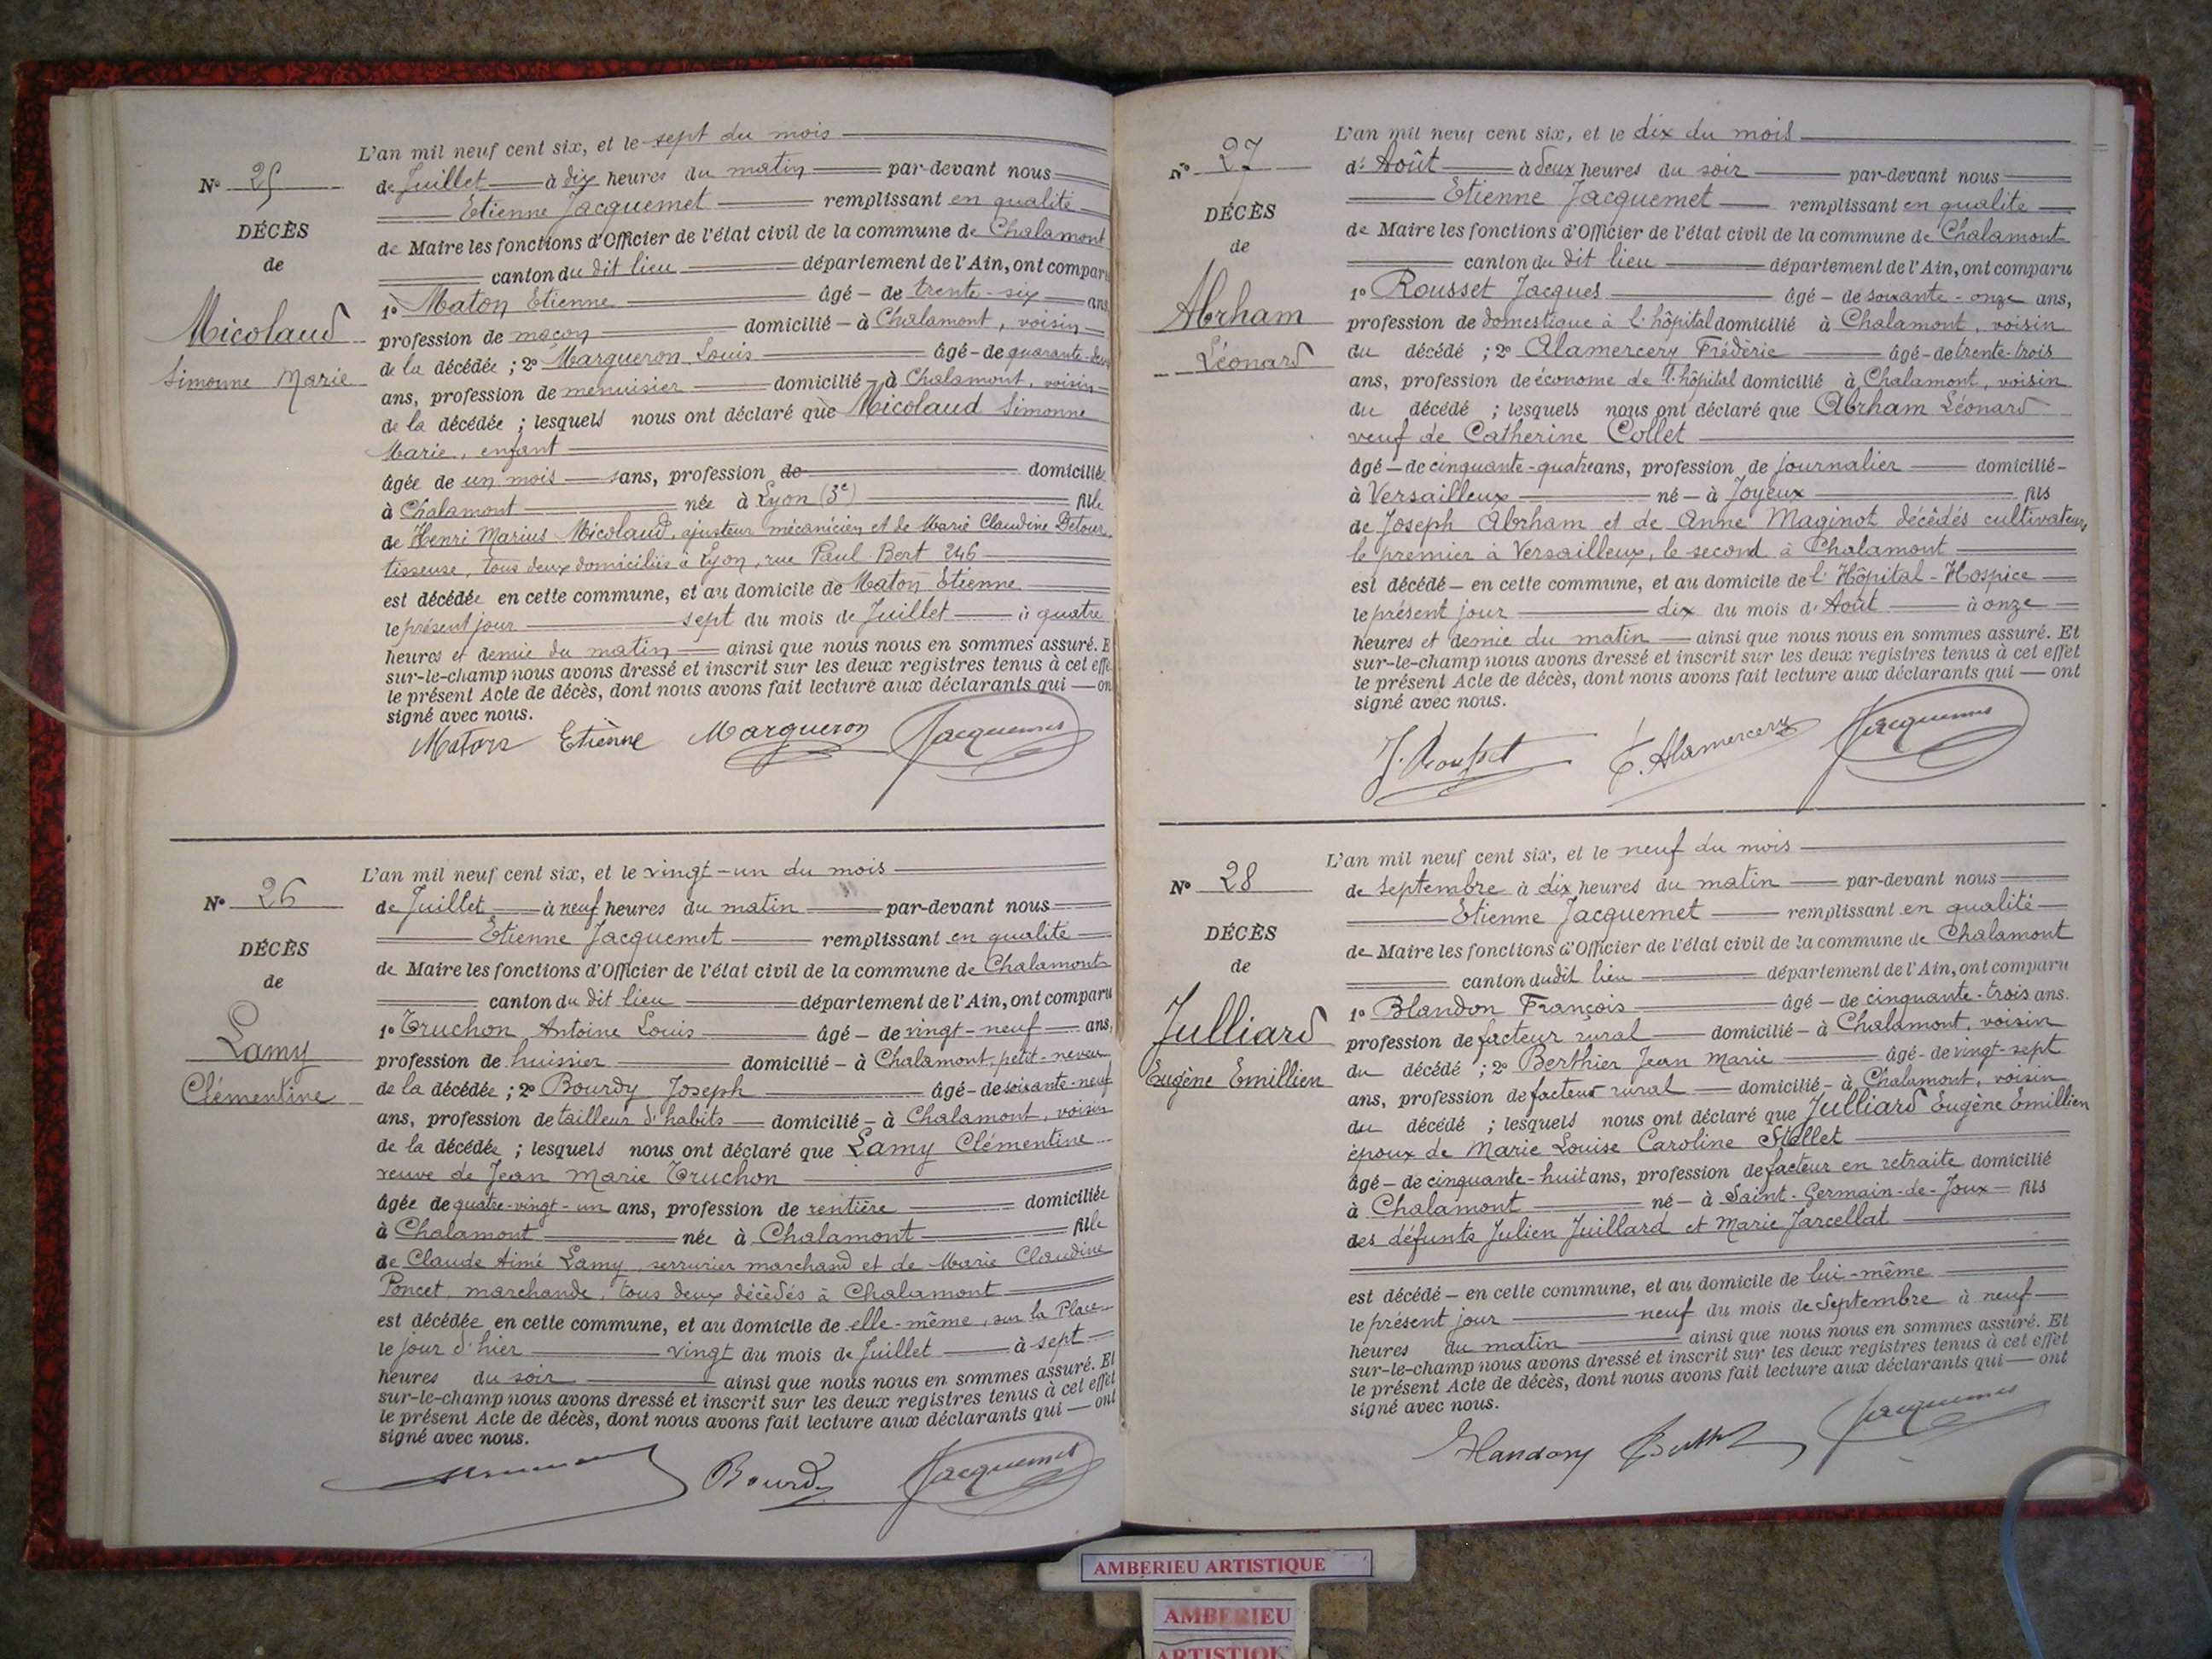 N° 25
DÉCÈS
de
Nicolaud
Simonne Marie
L'an mil neuf cent six, et le sept du mois
de Juillet à dix heures du matin par-devant nous
Etienne Jacquemet remplissant en qualité
de Maire les fonctions d'Officier de l'état civil de la commune de Chalamont
canton du dit lieu département de l'Ain, ont comparu
1° Maton Etienne âgé - de trente-six ans,
profession de maçon domicilié - à Chalamont, voisin
de la décédée ; 2° Margueron Louis âgé - de quarante-deux
ans, profession de menuisier domicilié - à Chalamont, voisin
de la décédée ; lesquels nous ont déclaré que Nicolaud Simonne
Marie, enfant
âgée de un mois sans, profession de domiciliée
à Chalamont née à Lyon (3e) fille
de Henri Marius Nicolaud, ajusteur mécanicien et de Marie Claudine Detour,
tisseuse, tous deux domiciliés à Lyon, rue Paul-Bert 246
est décédée en cette commune, et au domicile de Maton Etienne
le présent jour sept du mois de Juillet à quatre
heures et demie du matin ainsi que nous nous en sommes assuré. E
sur-le-champ nous avons dressé et inscrit sur les deux registres tenus à cet effe
le présent Acte de décès, dont nous avons fait lecture aux déclarants qui — on
signé avec nous.
Maton Etiènne Margueron Jacquemet
N° 26
DÉCÈS
de
Lamy
Clémentine
L'an mil neuf cent six, et le vingt-un du mois
de Juillet à neuf heures du matin par-devant nous
Etienne Jacquemet remplissant en qualité
de Maire les fonctions d'Officier de l'état civil de la commune de Chalamont
canton du dit lieu département de l'Ain, ont comparu
1° Truchon Antoine Louis âgé - de vingt-neuf ans,
profession de huissier domicilié - à Chalamont, petit-neveu
de la décédée ; 2° Bourdy Joseph âgé - de soixante-neuf
ans, profession de tailleur d'habits domicilié - à Chalamont, voisin
de la décédée ; lesquels nous ont déclaré que Lamy Clémentine
veuve de Jean Marie Truchon
âgée de quatre-vingt-un ans, profession de rentière domiciliée
à Chalamont née à Chalamont fille
de Claude Aimé Lamy, serrurier marchand et de Marie Claudine
Poncet, marchande, tous deux décédés à Chalamont
est décédée en cette commune, et au domicile de elle-même, sur la Place
le jour d'hier vingt du mois de Juillet à sept
heures du soir ainsi que nous nous en sommes assuré. Et
sur-le-champ nous avons dressé et inscrit sur les deux registres tenus à cet effet
le présent Acte de décès, dont nous avons fait lecture aux déclarants qui — ont
signé avec nous.
Bourdy Jacquemet
N° 27
DÉCÈS
de
Abrham
Léonard
L'an mil neuf cent six, et le dix du mois
d'Août à deux heures du soir par-devant nous
Etienne Jacquemet remplissant en qualité
de Maire les fonctions d'Officier de l'état civil de la commune de Chalamont
canton du dit lieu département de l'Ain, ont comparu
1° Rousset Jacques âgé - de soixante-onze ans,
profession de domestique à l'hôpital domicilié à Chalamont, voisin
du décédé ; 2° Alamercery Frédéric âgé - de trente-trois
ans, profession de économe de l'hôpital domicilié à Chalamont, voisin
du décédé ; lesquels nous ont déclaré que Abrham Léonard
veuf de Catherine Collet
âgé - de cinquante-quatre ans, profession de journalier domicilié -
à Versailleux né - à Joyeux fils
de Joseph Abrham et de Anne Maginot décédés cultivateurs,
le premier à Versailleux, le second à Chalamont
est décédé - en cette commune, et au domicile de l'Hôpital-Hospice
le présent jour dix du mois d'Août à onze
heures et demie du matin ainsi que nous nous en sommes assuré. Et
sur-le-champ nous avons dressé et inscrit sur les deux registres tenus à cet effet
le présent Acte de décès, dont nous avons fait lecture aux déclarants qui — ont
signé avec nous.
J. Rousset F. Alamercery Jacquemet
N° 28
DÉCÈS
de
Julliard
Eugène Emillien
L'an mil neuf cent six, et le neuf du mois
de Septembre à dix heures du matin par-devant nous
Etienne Jacquemet remplissant en qualité
de Maire les fonctions d'Officier de l'état civil de la commune de Chalamont
canton dudit lieu département de l'Ain, ont comparu
1° Blandon François âgé - de cinquante-trois ans.
profession de facteur rural domicilié - à Chalamont, voisin
du décédé ; 2° Berthier Jean Marie âgé - de vingt-sept
ans, profession de facteur rural domicilié - à Chalamont, voisin
du décédé ; lesquels nous ont déclaré que Julliard Eugène Emillien
époux de Marie Louise Caroline Stollet
âgé - de cinquante-huit ans, profession de facteur en retraite domicilié
à Chalamont né - à Saint-Germain-de-Joux fils
des défunts Julien Juillard et Marie Jarcellat
est décédé - en cette commune, et au domicile de lui-même
le présent jour neuf du mois de Septembre à neuf
heures du matin ainsi que nous nous en sommes assuré. Et
sur-le-champ nous avons dressé et inscrit sur les deux registres tenus à cet effet
le présent Acte de décès, dont nous avons fait lecture aux déclarants qui — ont
signé avec nous.
Blandon Jacquemet
AMBERIEU ARTISTIQUE
AMBERIEU
ARTISTIQUE